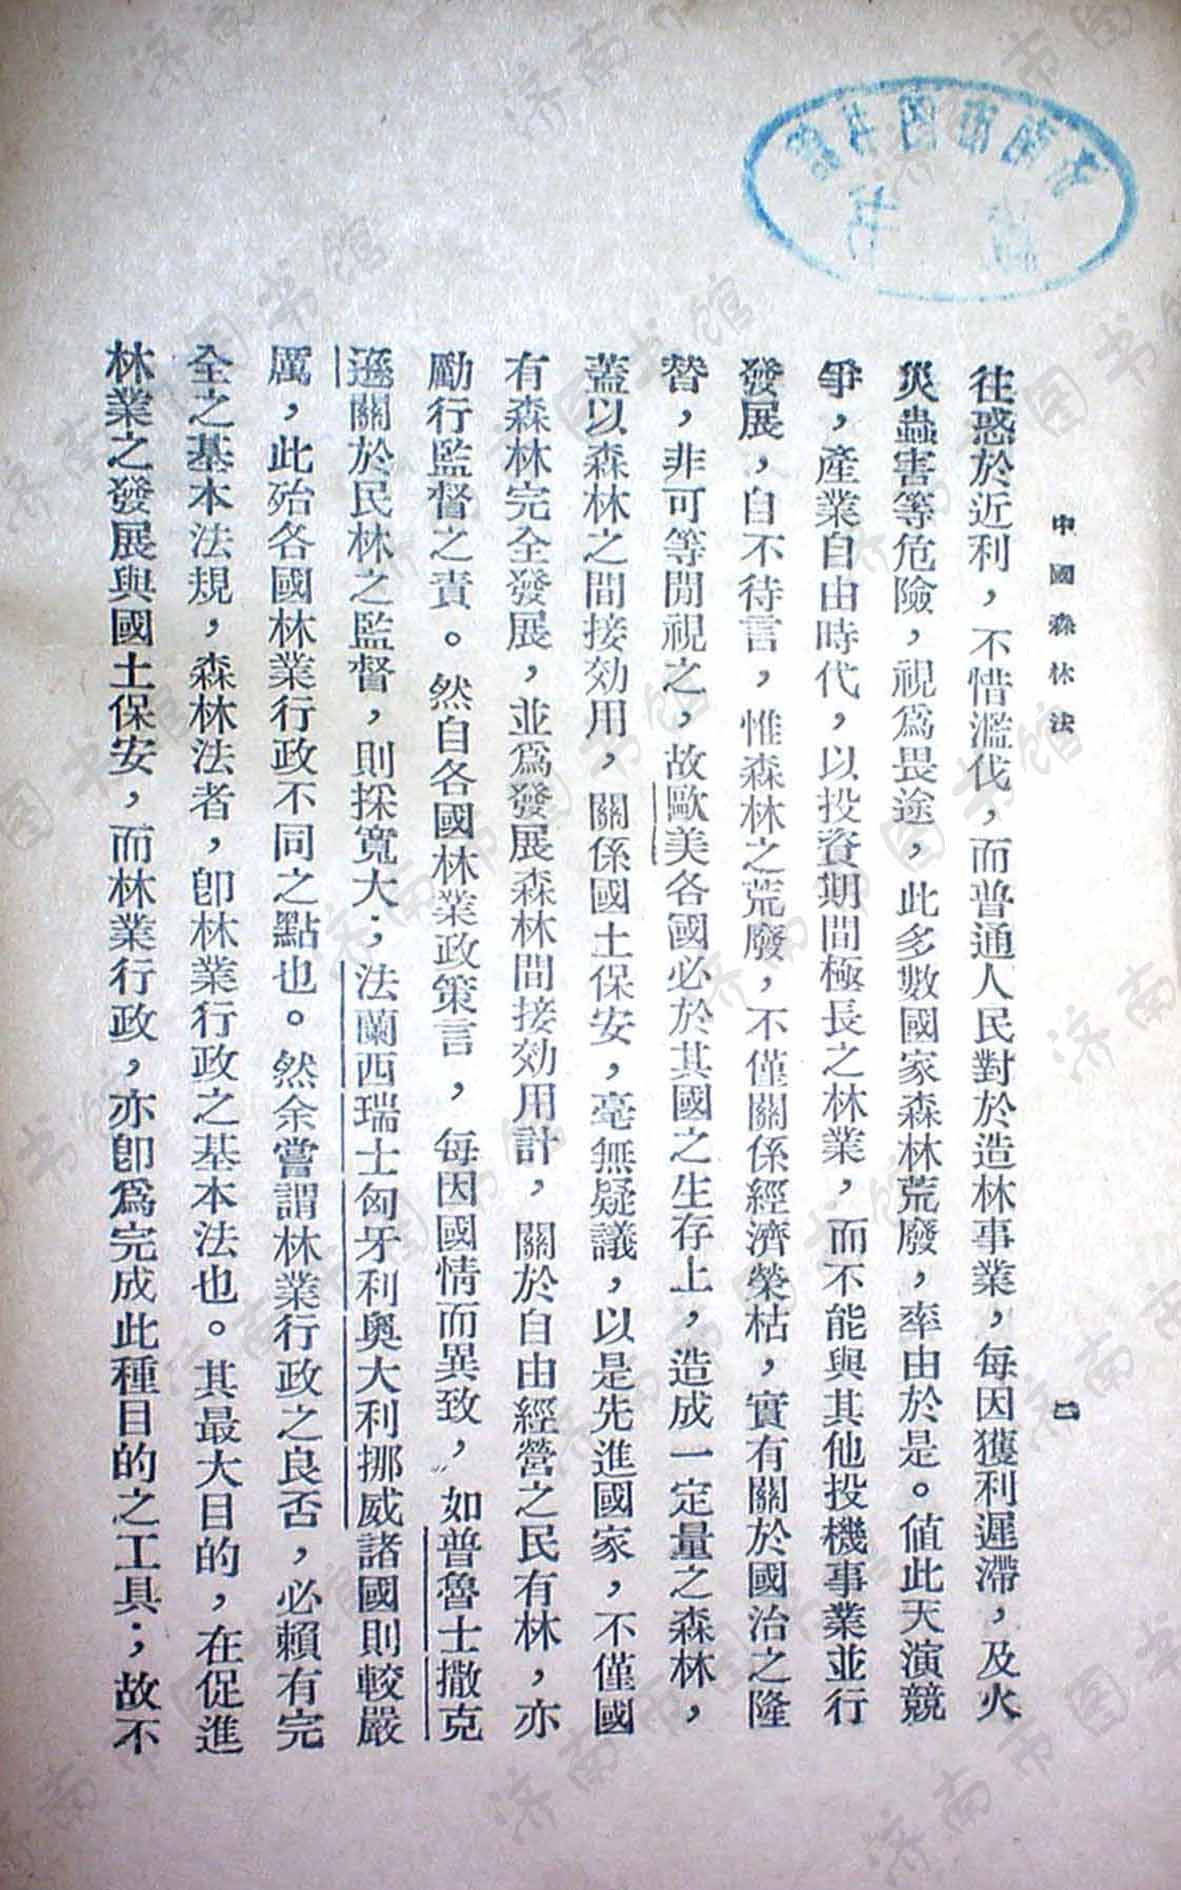 中國森林法
二
往惑於近利，不惜濫伐，而普通人民對於造林事業，每因獲利遲滯，及火
災蟲害等危險，視爲畏途，此多數國家森林荒廢，率由於是。値此天演競
爭，產業自由時代，以投資期間極長之林業，而不能與其他投機事業並行
發展，自不待言，惟森林之荒廢，不僅關係經濟榮枯，實有關於國治之隆
替，非可等閒視之，故歐美各國必於其國之生存上，造成一定量之森林，
蓋以森林之間接効用，關係國土保安，毫無疑議，以是先進國家，不僅國
有森林完全發展，並爲發展森林間接効用計，關於自由經營之民有林，亦
勵行監督之責。然自各國林業政策言，每因國情而異致，如普魯士撒克
遜關於民林之監督，則採寬大；法蘭西瑞士匈牙利奧大利挪威諸國則較嚴
厲，此殆各國林業行政不同之點也。然余嘗謂林業行政之良否，必賴有完
全之基本法規，森林法者，卽林業行政之基本法也。其最大目的，在促進
林業之發展與國土保安，而林業行政，亦卽爲完成此種目的之工具；故不
济南市图书馆